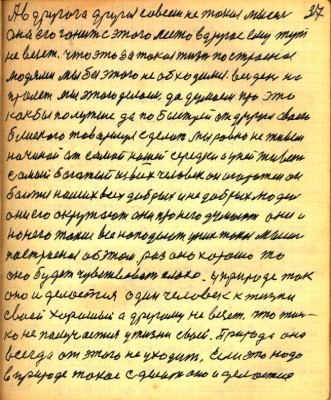 37
А в другога другия совсем не такия мысли
она его гонит с этого места в другое ему тут
не везет. что это за такая жизнь построена
людями мы без этого не обходимся. везде на
пролет мы это делаем, да думаем про это
как бы получше да побыстрей от друга своего
близкого товарища сделать мы ровно не живем
начиная от самой нашей середки в ней живет
самый богатый из всех человек он
ближе наших всех добрых и не добрых людей
они его окружают они про него думают они и
него такие все
построения об этом, раз оно хорошо то
оно будет чувствовать плохо. у природе так
оно и делается один человек к жизни
своей хороший а другому не везет. это толь-
ко не получается у жизни своей. Природа она
всегда от этого не уходит. Если это надо
в природе такое сделать оно и делается